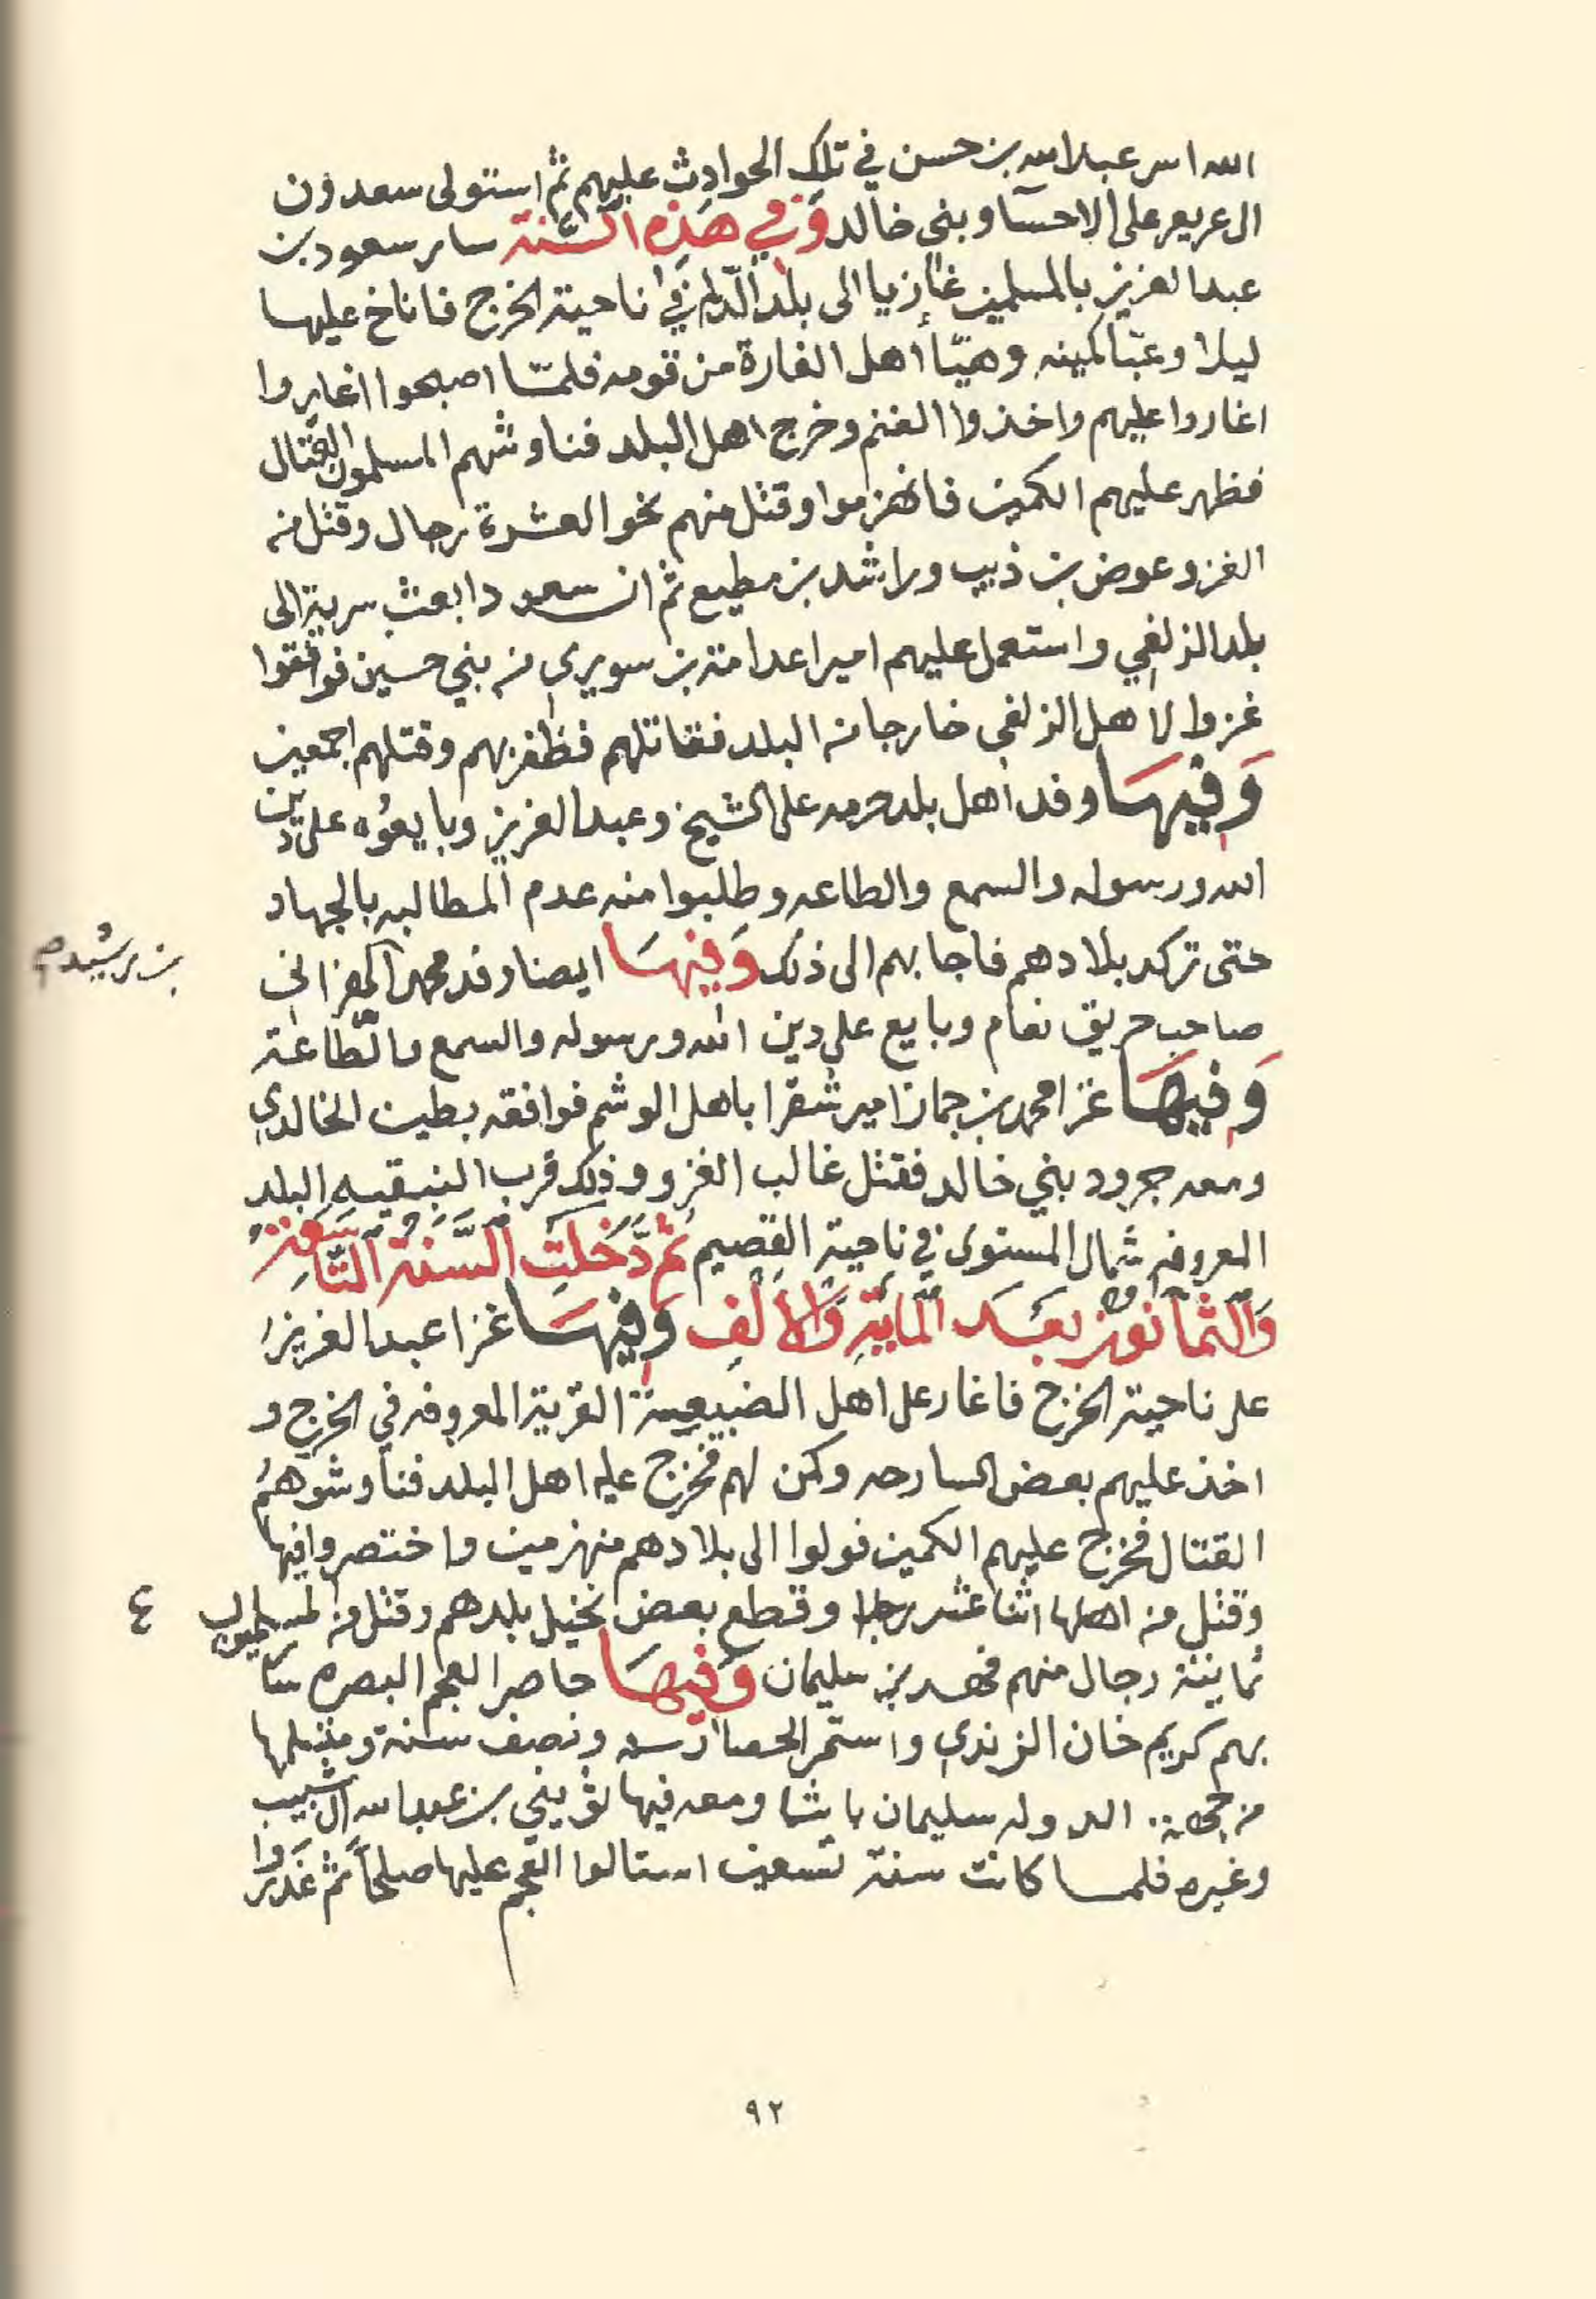 الله اسر عبدالله بن حسن في تلك الحوادث عليهم ثم استولى سعدون
ال عريعر على الاحسآ وبني خالد وَفي هَذِه السَّنة سار سعود بن
عبدالعزيز بالمسلمين غازيا الى بلد الدّلم في ناحية الخرج فاناخ عليها
ليلا وعبّا كمينه وهيّأ أهل الغارة من قومه فلمّا اصبحوا اغاروا
اغاروا عليهم واخذوا الغنم وخرج اهل البلد فناوشهم المسلمون القتال
فظهر عليهم الكمين فانهزموا وقتل منهم نحو العشرة رجال وقتل من
الغزو عوض بن ذيب وراشد بن مطيع ثم ان سعودا بعث سرية الى
بلد الزلفي واستعمل عليهم اميرا عدامة بن سويري من بني حسين فوافقوا
غزوا لاهل الزلفي خارجا من البلد فقاتلهم فظفر بهم وقتلهم اجمعين
وَفِيهَا وفد اهل بلد حرمه على الشيخ وعبدالعزيز وبايعوُه على دين
الله ورسوله والسمع والطاعه وطلبوا منه عدم المطالبه بالجهاد
حتى تركد بلادهم فاجابهم الى ذلك وَفيهَا ايضا وفد محمد المفراني
بن رشيد م
صاحب حريق نعام وبايع على دين الله ورسوله والسمع والطّاعة
وَفِيهَا غزا محمد بن جماز امير شقرا باهل الوشم فوافقه بطين الخالدي
ومعه جرود بني خالد فقتل غالب الغزو وذلك قرب النبقيه البلد
المعروفه شمال المستوى في ناحية القصيم ثم دَّخَلَتِ السَّنَةُ التَّاسِعَةُ
وَالثمانون بعَد المايَةِ وَالأَلفِ وَفِيهَا غزا عبدالعزيز
على ناحية الخرج فاغار على اهل الضبيعة القرية المعروفه في الخرج و
اخذ عليهم بعض السارحه وكمن لهم فخرج عليه اهل البلد فناوشوهمُ
القتال فخرج عليهم الكمين فولوا الى بلادهم منهزمين واختصروا فيها
وقتل من اهلها اثنا عشر رجلا وقطع بعض نخيل بلدهم وقتل من المسلمين
٤
ثمانية رجال منهم فهد بن سليمان وَفِيهَا حاصر العجم البصره سَا
بهم كريم خان الزندي واستمر الحصار سنه ونصف سنة ومتسلمها
من جهة الدوله سليمان باشا ومعه فيها ثويني بن عبدالله ال شبيب
وغيره فلمـا كانت سنة تسعين استالوا العجم عليها صلحاً ثم غَدَرُوا
٩٢